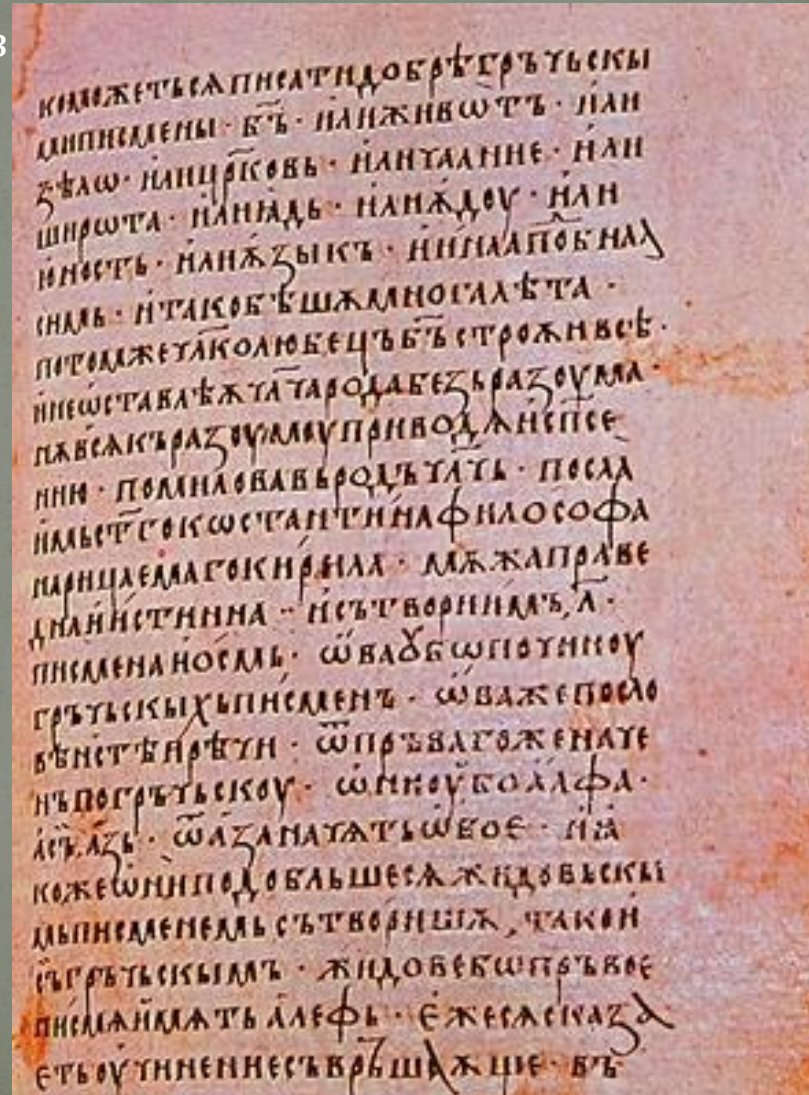 3
коможетьсѧписатидобрѣгръчьскы
мипісмены · б҃ъ · и҆лиживѡтъ · и҆ли
ѕѣлѡ · и҆лицр҃ковь · и҆личаание · и҆ли
широта · и҆лиꙗ҆дь · и҆лиѫ҆доу · и҆ли
юность · и҆лиѫ҆зыкъ · и҆и҆наапо҃бнаа
симь · и҆такобѣшѫмногалѣта ·
потомжечл҃колюбецъб҃ъстроѫивсѣ ·
и҆неѡставлѣѫчл҃чародабезьразоума ·
нѫвсѧкъразоумоуприводѧисп҃се
нию · помиловавьродъчл҃чь · посла
и҆мьст҃гокѡстантинафилософа
нарицаемагокирила · мѫжаправе
днаи҆истинна · и҆сътвории҆мъ л҃ ·
писменаи҆осмь · ѡ҆ваꙋбѡпочиноу
гръчьскыхьписменъ · ѡ҆важепосло
вѣнстѣирѣчи · ѿпръвагоженаче
нъпогръчьскоу · ѡ҆ниоубоалфа ·
асъ҆ азь · ѿазаначѧтьѡ҆бое · и҆ꙗ҆
кожеѡ҆ниподобльшесѧжидовьскы
мьписменемьсътворишѫ, такои҆
съгръчьскымъ · жидовебѡпръвое
писмѧи҆мѧтьа҆лефь · є҆жесѧсказа
етьоу҆чинениесъвръшаѫще · въ